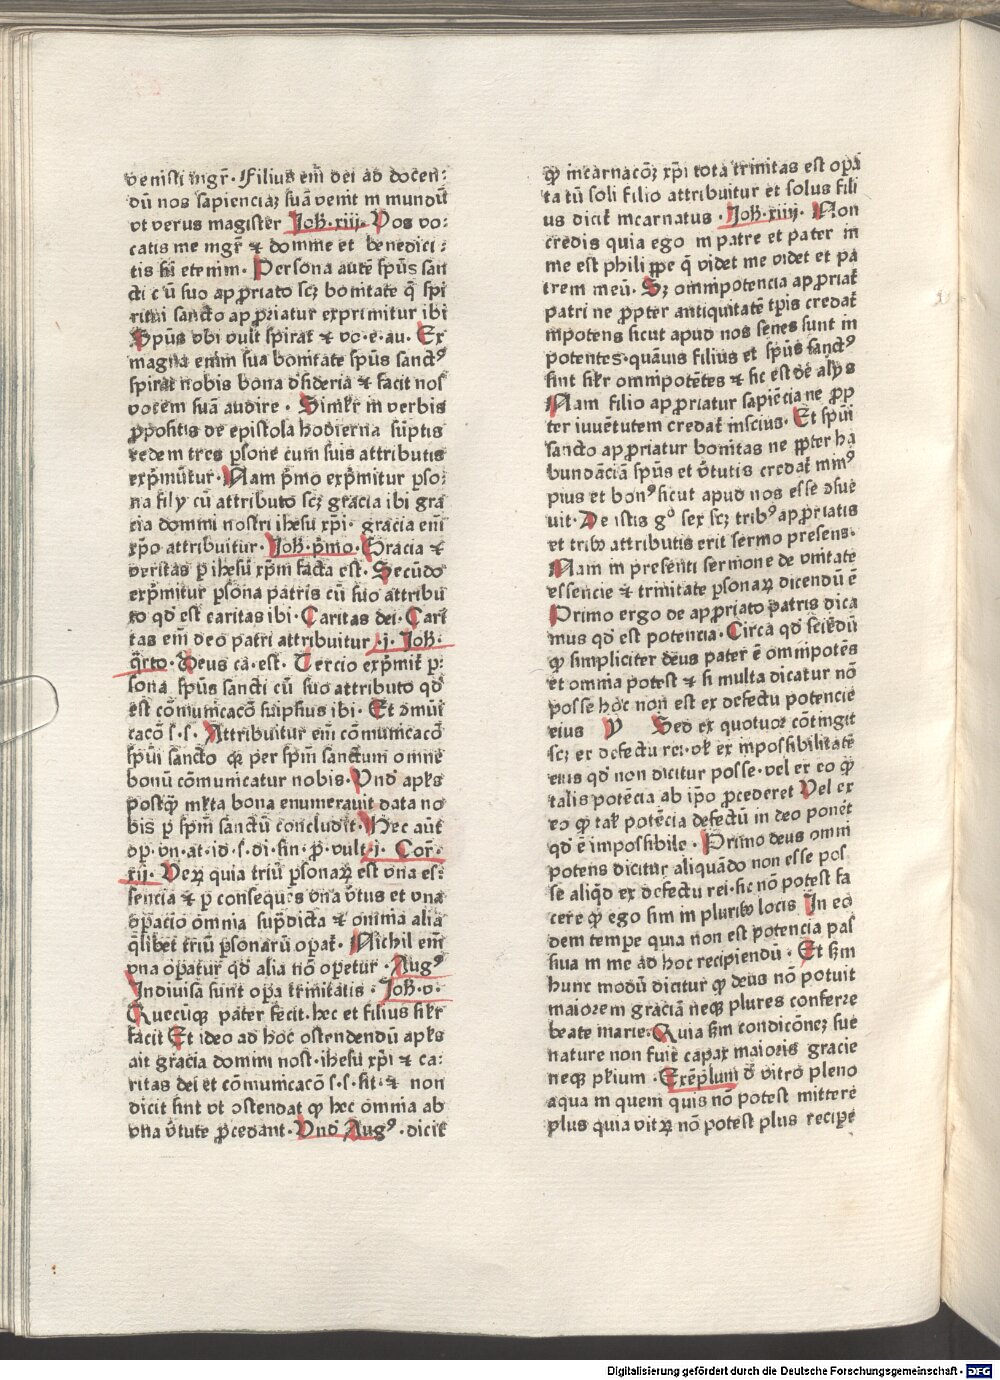 venisti mgr̄. Filius em̄ dei ad docen:
dū nos sapienciaʒ suā venit in mundū
vt verus magister Joh̄. xiij. Vos vo-
catis me mgr̄ ⁊ domine et benedici:
tis sū etenim. Persona autē spūs san
cti cū suo appropriato scʒ bonitate q̄ spi
ritui sancto appropriatur exprimitur ibi
Spūs vbi vult spirat ⁊ vo. e. au. Ex
magna enim sua bonitate spūs sanctꝰ
spirat nobis bona dʼsideria ⁊ facit nos
vocem suā audire. Simlr̄ in verbis
ꝓpositis de epistola hodierna sūptis
eedem tres ꝑsone cum suis attributis
exp̄mūtur. Nam p̄mo exp̄mitur ꝑso:
na filij cū attributo scʒ gracia ibi gra
cia domini nostri ihesu xp̄i. gracia em̄
xp̄o attribuitur. Joh̄. p̄mo. Gracia ⁊
veritas ꝑ ihesū xp̄m facta est. Secūdo
exp̄mitur ꝑsona patris cū suo attribu
to qd̄ est caritas ibi. Caritas dei. Cari
tas em̄ deo patri attribuitur. j. Joh̄.
q̄rto. Deus ca. est. Tercio exp̄mit̄ ꝑ:
sona spūs sancti cū suo attributo qd̄
est cōmunicacō suipsius ibi. Et ꝯmūi
cacō s. s. Attribuitur em̄ cōmunicacō
spūi sancto qꝫ per spm̄ sanctum omne
bonū cōmunicatur nobis. Vnd̄ apls̄
postq̄ mlta bona enumerauit data no
bis ꝑ spm̄ sanctū concludit. Hec aūt
op. vn. at. id. s. di. sin. ꝓ. vult. j. Cor.
xij. Veꝝ quia triū ꝑsonaꝝ est vna es:
sencia ⁊ ꝑ consequēs vna v̄tus et vna
oꝑacio omnia sup̄dicta ⁊ omnia alia
q̄libet triū ꝑsonarū oꝑat̄. Nichil em̄
vna oꝑatur qd̄ alia nō oꝑetur. Augꝰ
Indiuisa sunt oꝑa trinitatis. Joh̄. v.
Quecūqꝫ pater fecit. hec et filius silr̄
facit Et ideo ad hoc ostendendū apls̄
ait gracia domini nost. ihesu xp̄i ⁊ ca:
ritas dei et cōmunicacō s. s. sit. ⁊ non
dicit sint vt ostendat qꝫ hec omnia ab
vna v̄tute ꝓcedant. Vnd̄ Augꝰ. dicit
qꝫ incarnacōʒ xp̄i tota trinitas est oꝑa
ta tn̄ soli filio attribuitur et solus fili
us dicit̄ incarnatus. Joh̄. xiiij. Non
credis quia ego in patre et pater in
me est philippe q̄ videt me videt et pa
trem meū. Sʒ omnipotencia appropriat̄
patri ne ꝓpter antiquitatē tꝑis credat̄
inpotens sicut apud nos senes sunt in
potentes. quāuis filius et spūs sanctꝰ
sint silr̄ omnipotētes ⁊ sic est dē alijs
Nam filio appropriatur sapiēcia ne ꝓp
ter iuuētutem credat̄ inscius. Et spūi
sancto appropriatur bonitas ne ꝓpter ha
bundāciā spūs et v̄tutis credat̄ minꝰ
pius et bonꝰ sicut apud nos esse ꝯsue
uit. De istis gº sex scʒ tribꝰ appropriatis
et tribꝰ attributis erit sermo presens.
Nam in presenti sermone de vnitate
essencie ⁊ trinitate ꝑsonaꝝ dicendū ē
Primo ergo de appropriato patris dica
mus qd̄ est potencia. Circa qd̄ sciēdū
qꝫ simpliciter deus pater ē omnipotēs
et omnia potest ⁊ si multa dicatur nō
posse hoc non est ex defectu potencie
eius Sed ex quotuor cōtingit
scʒ ex defectu rei. vl̄ ex impossibilitate
eius qd̄ non dicitur posse. vel ex eo qꝫ
talis potēcia ab ip̄o ꝓcederet Vel ex
eo qꝫ tal̄ potēcia defectū in deo ponet̄
qd̄ ē impossibile. Primo deus omni
potens dicitur aliquādo non esse pos
se aliqd̄ ex defectu rei. sic nō potest fa
cere qꝫ ego sim in pluribꝰ locis In eo
dem tempe quia non est potencia pas
siua in me ad hoc recipiendū. Et scd̄m
hunc modū dicitur qꝫ deus nō potuit
maiorem graciā neqꝫ plures conferre
beate marie. Quia scd̄m condicōneʒ sue
nature non fuit capax maioris gracie
neqꝫ plurium. Exēplum d̄ vitro pleno
aqua in quem quis nō potest mittere
plus quia vitꝝ nō potest plus reciꝑe
Digitalisierung gefördert durch die Deutsche Forschungsgemeinschaft - DFG